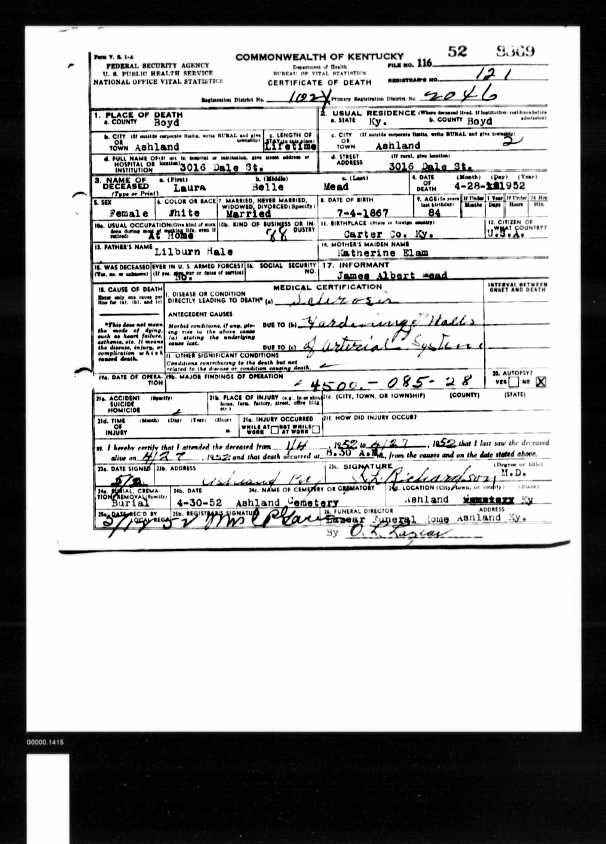 Form V. S. 1-A
COMMONWEALTH OF KENTUCKY
52 8369
FEDERAL SECURITY AGENCY
U. S. PUBLIC HEALTH SERVICE
NATIONAL OFFICE VITAL STATISTICS
Department of Health
BUREAU OF VITAL STATISTICS
CERTIFICATE OF DEATH
FILE NO. 116
REGISTRAR'S NO. 121
Registration District No. Primary Registration District No. 2046
1. PLACE OF DEATH
a. COUNTY Boyd
2. USUAL RESIDENCE (Where deceased lived. If institution: residence before admission)
a. STATE Ky. b. COUNTY Boyd
b. CITY (If outside corporate limits, write RURAL and give township)
OR
TOWN Ashland
c. LENGTH OF STAY (in this place)
Lifetime
c. CITY (If outside corporate limits, write RURAL and give township)
OR
TOWN Ashland 2
d. FULL NAME OF (If not in hospital or institution, give street address or location)
HOSPITAL OR
INSTITUTION 3016 Dale St.
d. STREET (If rural, give location)
ADDRESS 3016 Dale St.
3. NAME OF DECEASED
(Type or Print)
a. (First) Laura
b. (Middle) Belle
c. (Last) Mead
4. DATE OF DEATH (Month) (Day) (Year)
4-28-1952
5. SEX
Female
6. COLOR OR RACE
White
7. MARRIED, NEVER MARRIED, WIDOWED, DIVORCED (Specify)
Married
8. DATE OF BIRTH
7-4-1867
9. AGE (In years last birthday)
84
If Under 1 Year
Months Days
If Under 24 Hrs
Hours Min.
10a. USUAL OCCUPATION (Give kind of work done during most of working life, even if retired)
At Home
10b. KIND OF BUSINESS OR INDUSTRY
88
11. BIRTHPLACE (State or foreign country)
Carter Co. Ky.
12. CITIZEN OF WHAT COUNTRY?
U.S.A.
13. FATHER'S NAME
Lilburn Hale
14. MOTHER'S MAIDEN NAME
Katherine Elam
15. WAS DECEASED EVER IN U. S. ARMED FORCES?
(Yes, no, or unknown) (If yes, give war or dates of service)
No.
16. SOCIAL SECURITY NO.
17. INFORMANT
James Albert Mead
18. CAUSE OF DEATH
Enter only one cause per line for (a), (b), and (c)
MEDICAL CERTIFICATION
INTERVAL BETWEEN ONSET AND DEATH
I. DISEASE OR CONDITION
DIRECTLY LEADING TO DEATH* (a)
*This does not mean the mode of dying, such as heart failure, asthenia, etc. It means the disease, injury, or complication which caused death.
ANTECEDENT CAUSES
Morbid conditions, if any, giving rise to the above cause (a) stating the underlying cause last.
DUE TO (b) Walls
DUE TO (c) of Arterial System
II. OTHER SIGNIFICANT CONDITIONS
Conditions contributing to the death but not related to the disease or condition causing death.
19a. DATE OF OPERATION
19b. MAJOR FINDINGS OF OPERATION
4500.-085-28
20. AUTOPSY?
YES NO X
21a. ACCIDENT (Specify)
SUICIDE
HOMICIDE
21b. PLACE OF INJURY (e.g., in or about home, farm, factory, street, office bldg., etc.)
21c. (CITY, TOWN, OR TOWNSHIP) (COUNTY) (STATE)
21d. TIME OF INJURY (Month) (Day) (Year) (Hour)
m.
21e. INJURY OCCURRED
WHILE AT WORK NOT WHILE AT WORK
21f. HOW DID INJURY OCCUR?
22. I hereby certify that I attended the deceased from , 1952 to 4/27, 1952 that I last saw the deceased
alive on 4/27, 1952 and that death occurred at 8.30 A.m., from the causes and on the date stated above.
23a. DATE SIGNED
23b. ADDRESS
Ashland Ky
23c. SIGNATURE (Degree or title)
Richardson M.D.
24a. BURIAL, CREMATION, REMOVAL (Specify)
Burial
24b. DATE
4-30-52
24c. NAME OF CEMETERY OR CREMATORY
Ashland Cemetery
24d. LOCATION (City, town, or county) (State)
Ashland Ky
25a. DATE REC'D BY LOCAL REG.
25b. REGISTRAR'S SIGNATURE
26. FUNERAL DIRECTOR ADDRESS
Lazear Funeral Home Ashland Ky.
By O. L. Lazear
00000.1415